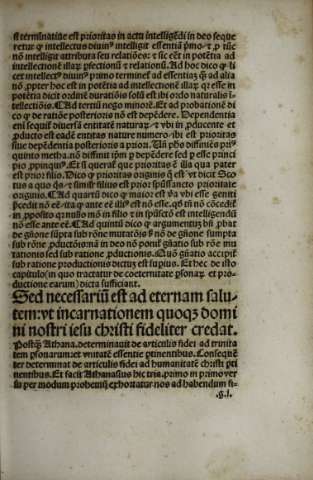 st terminatiue est prioritas in actu intelligẽdi in deo seque
retur ꝙ intellectus diuinꝰ intelligit essentiã pͥmo: ⁊ ꝓ tũc
nõ intelligit attributa seu relatiões: ⁊ sic eẽt in potẽtia ad
intellectionẽ illaꝝ ꝑfectionũ ⁊ relationũ. Ad hoc dico ꝙ li
cet intellectꝰ diuinꝰ primo terminet̃ ad essentiaꝫ ꝙ̃ ad alia
nõ ꝓpter hoc est in potẽtia ad intellectionẽ illaꝝ: ꝙ esse in
potẽtia dicit ordinẽ durationis solũ est ibi ordo naturalis ĩ
tellectiõis. ¶ Ad tertiũ nego minorẽ. Et ad probationẽ di
co ꝙ de ratiõe posterioris nõ est depẽdere. Dependentia
eni sequit̃ diuersã entitatẽ naturaꝝ: ⁊ vbi in ꝓducente et
ꝓducto est eadẽ entitas nature numero: ibi est prioritas
siue depẽdentia posterioris a priori. Uñ phs diffiniẽs priꝰ
quinto metha. nõ diffinit ipm ꝑ depẽdere sed ꝑ esse princi
pio ꝓpinquiꝰ. Et si querat̃ que prioritas ẽ illa qua pater
est prior filio. Dico ꝙ prioritas originis q̃ est vt dicit Sco
tus a quo q̃a: ⁊ simil̃r filius est prior spũsancto prioritate
originis. ¶ Ad quartũ dico ꝙ maior est va vbi esse geniti
p̃cedit nõ eẽ: ita ꝙ ante eẽ illiꝰ est nõ esse. qđ tñ nõ cõcedit̃
in ꝓposito qꝛ nusq̃ mõ in filio ⁊ in spũsctõ est intelligendũ
nõ esse ante eẽ. ¶ Ad quintũ dico ꝙ argumentũ bñ ꝓbat
de gñone sũpta sub rõne mutatiõis: sꝫ nõ de gñone sumpta
sub rõne ꝓductiõis: mõ in deo nõ ponit̃ gñatio sub rõe mu
tationis sed sub ratione ꝓductionis. Quõ gñatio accipit̃
sub ratione productionis dictũ est supius. Et hec de isto
capitulo (in quo tractatur de coeternitate ꝑsonaꝝ et pro-
ductione earum) dicta sufficiant.
Sed necessariũ est ad eternam salu-
tem: vt incarnationem quoqꝫ domi
ni nostri iesu christi fideliter credat.
Postꝗ̃ Athana. determinauit de articulis fidei ad trinita
tem ꝑsonarum: et vnitatẽ essentie ꝑtinentibus. Consequẽ
ter determinat de articulis fidei ad humanitatẽ christi ꝑti
nentibus. Et facit Athanasius hic tria. primo in primo ver
su per modum prohemij exhortatur nos ad habendum fi-
.g.i.